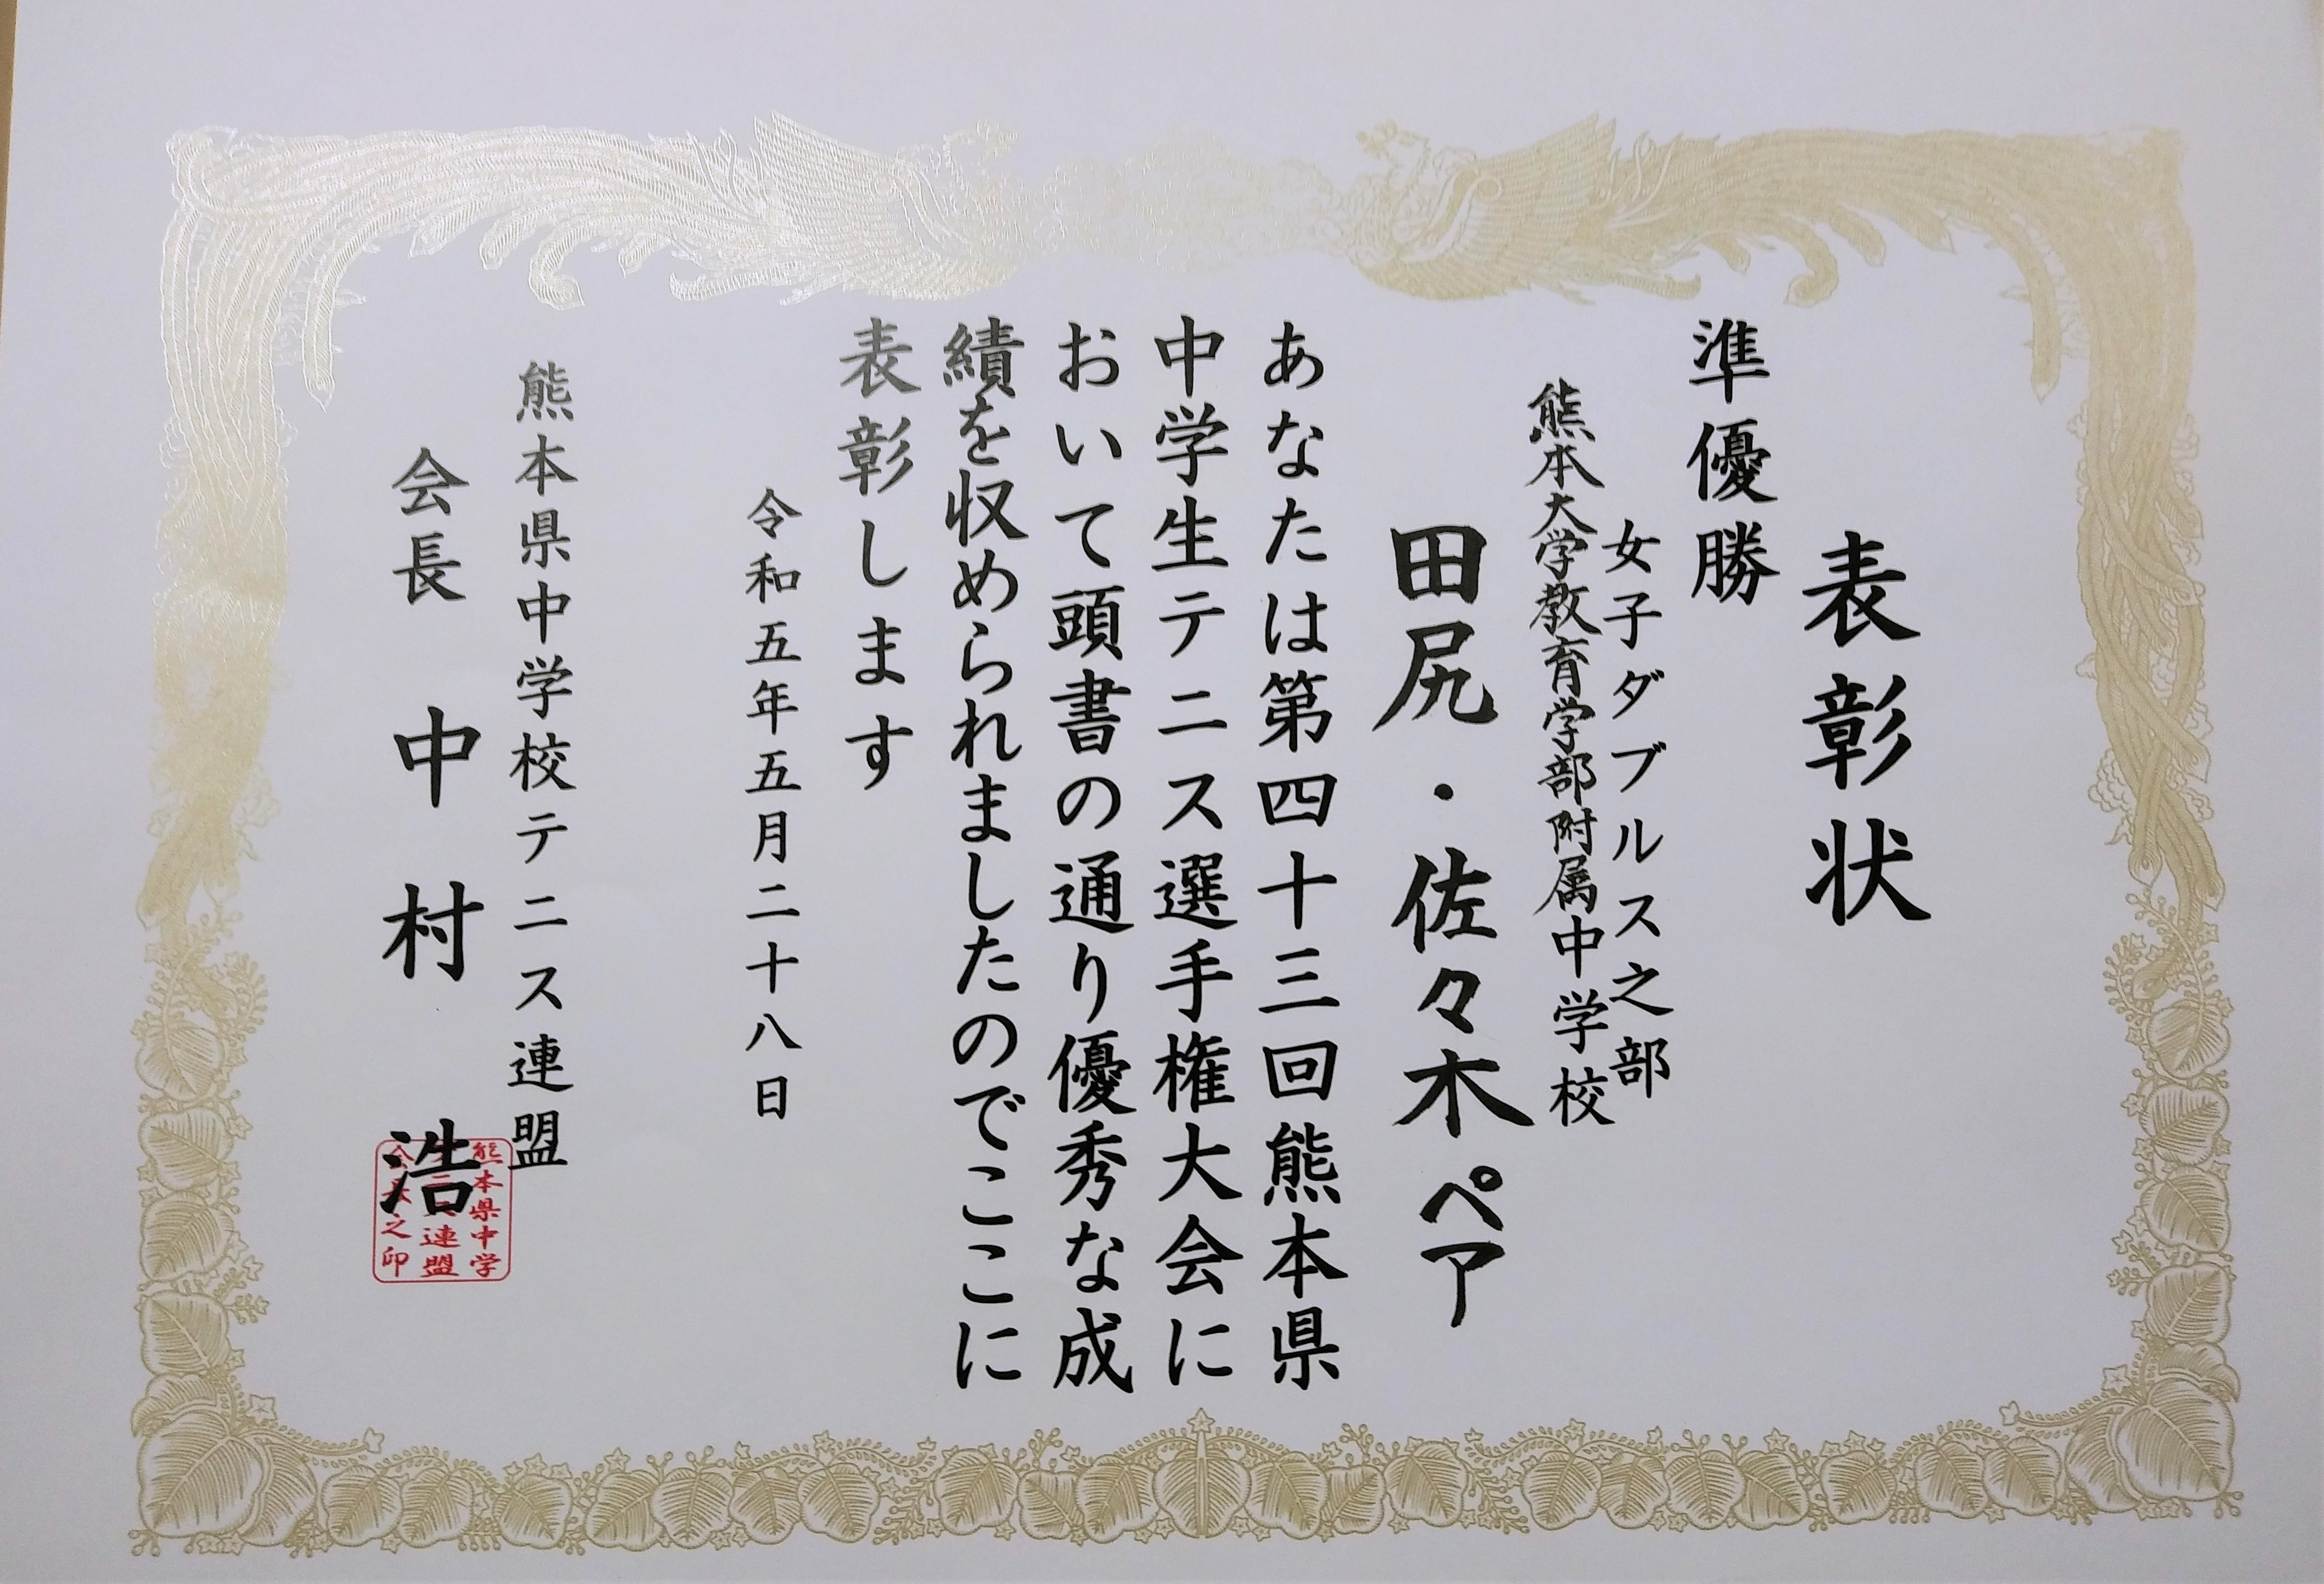 表彰状
準優勝
女子ダブルス之部
熊本大学教育学部附属中学校
田尻・佐々木ペア
あなたは第四十三回熊本県
中学生テニス選手権大会に
おいて頭書の通り優秀な成
績を収められましたのでここに
表彰します
令和五年五月二十八日
熊本県中学校テニス連盟
会長 中村 浩
熊本県中学
連盟
之印